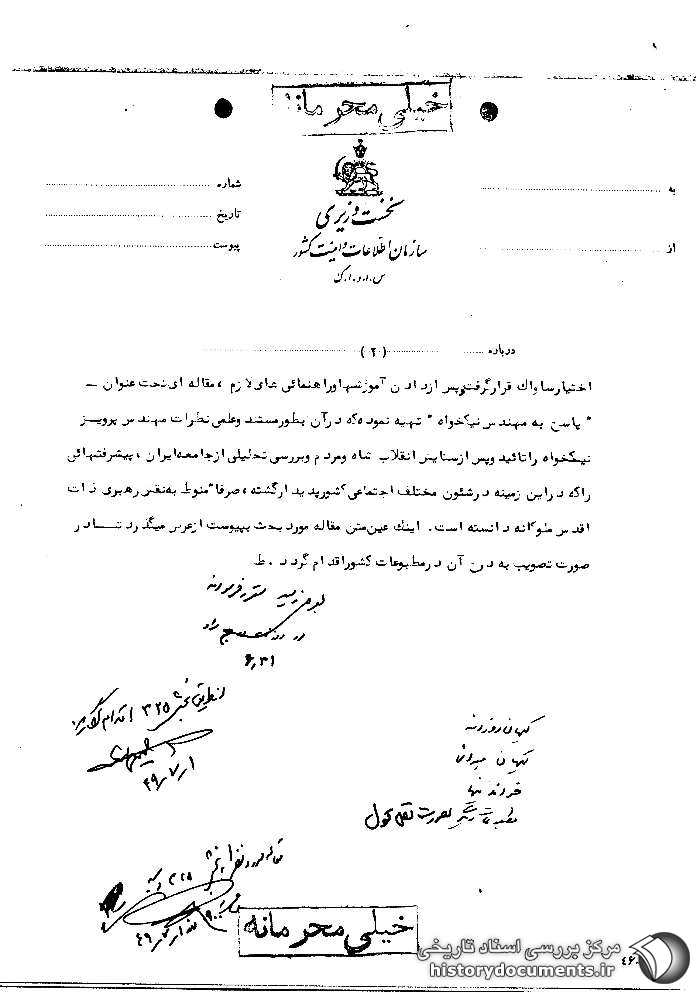 خیلی محرمانه
نخست وزیری
سازمان اطلاعات و امنیت کشور
س.ا.و.ا.ک
به
از
شماره
تاریخ
پیوست
درباره (۲)
اختیار ساواک قرار گرفت و پس از دادن آموزشها و راهنمائی های لازم ، مقاله ای تحت عنوان ــ
" پاسخ به مهندس نیکخواه " تهیه نموده که در آن بطور مستند و علمی نظرات مهندس پرویز
نیکخواه را تائید و پس از ستایش انقلاب شاه و مردم و بررسی تحلیلی از جامعه ایران ، پیشرفتهائی
را که در این زمینه در شئون مختلف اجتماعی کشور پدیدار گشته ، صرفا" منوط به نقش رهبری ذات
اقدس ملوکانه دانسته است . اینک عین متن مقاله مورد بحث بپیوست از عرض میگذرد تا در
صورت تصویب به درج آن در مطبوعات کشور اقدام گردد . ط
بعرض رسید مقرر فرمودند
۶٫۳۱
از طریق بخش ۳۲۵ اقدام گردد
۴۹٫۷٫۱
کیهان روزانه
کیهان
مطبوعات دیگر بصورت نقل قول
خیلی محرمانه
مرکز بررسی اسناد تاریخی
historydocuments.ir